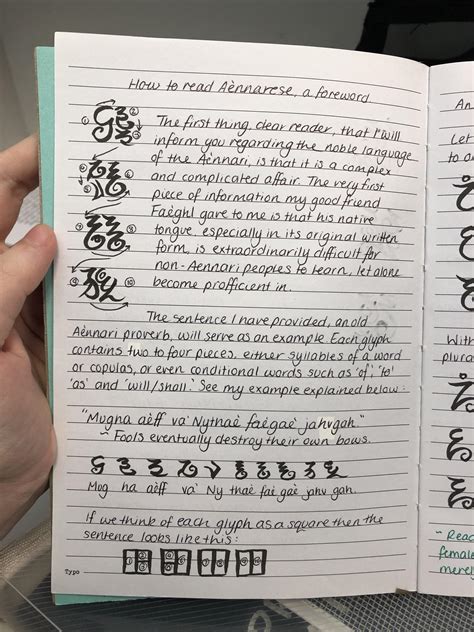 How to read Aènnarese, a foreword
The first thing, dear reader, that I will
inform you regarding the noble language
of the Aènnari, is that it is a complex
and complicated affair. The very first
piece of information my good friend
Faèghl gave to me is that his native
tongue, especially in its original written
form, is extraordinarily difficult for
non-Aennari peoples to learn, let alone
become profficient in.
The sentence I have provided, an old
Aènnari proverb, will serve as an example. Each glyph
contains two to four pieces, either syllables of a word
or copulas, or even conditional words such as 'of', 'to'
'as' and 'will/shall'. See my example explained below:
"Mugna aèff va' Nythaè faègaè jahvgah."
~ Fools eventually destroy their own bows.
Mug na aèff va' Ny thaè faè gaè jahv gah.
If we think of each glyph as a square then the
sentence looks like this:
Typo
An
Let
to
With
plura
~ Read
female
merel